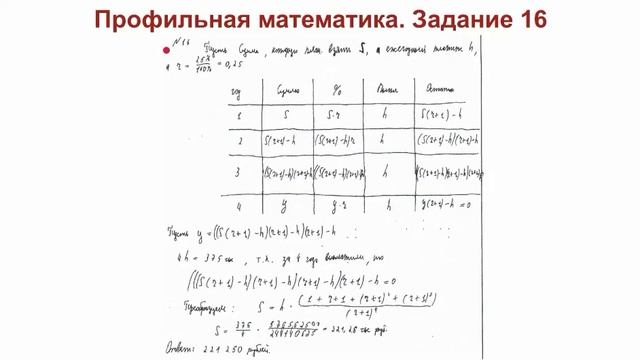 Профильная математика. Задание 16
№16 Пусть сумма, которую взять S, а ежегодный платеж h,
а r = 25% / 100% = 0,25
год Сумма % Выпл Остаток
1 S S·r h S(r+1)-h
2 S(r+1)-h (S(r+1)-h)r h (S(r+1)-h)(r+1)-h
3 h
4 y y·r h y(r+1)-h=0
Пусть y = ((S(r+1)-h)(r+1)-h)(r+1)-h
4h = 375 , т.к. за 4 год выплатили, то
(((S(r+1)-h)(r+1)-h)(r+1)-h)(r+1)-h=0
Преобразуем: S = h · (1+r+1+(r+1)²+(r+1)³) / (r+1)⁴
S = 375 / 4 · = 221,25 тыс руб.
Ответ: 221 250 рублей.